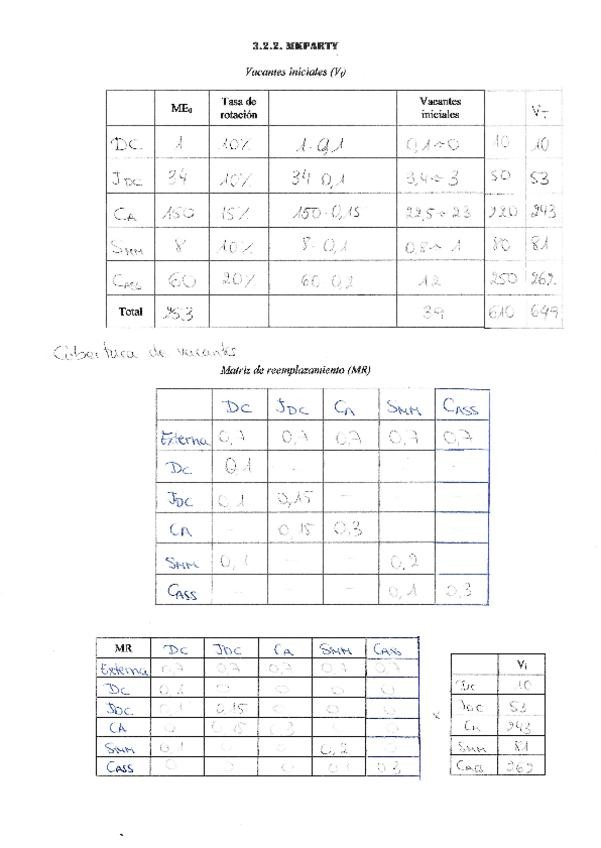 3.2.2. MKPARTY
Vacantes iniciales (V₁)
ME₀ Tasa de rotación Vacantes iniciales V_T
DC. 1 10% 1·0,1 0,1≈0 10 10
JDC 34 10% 34·0,1 3,4≈3 50 53
CA 150 15% 150·0,15 22,5≈23 220 243
SMM 8 10% 8·0,1 0,8≈1 80 81
CASS 60 20% 60·0,2 12 250 262
Total 253 39 610 649
Cobertura de vacantes
Matriz de reemplazamiento (MR)
DC JDC CA SMM CASS
Externa 0,7 0,7 0,7 0,7 0,7
DC 0,1 - - -
JDC 0,1 0,15 - -
CA - 0,15 0,3
SMM 0,1 - - 0,2
CASS - - - 0,1 0,3
MR DC JDC CA SMM CASS
Externa 0,7 0,7 0,7 0,7 0,7
DC 0,1 0 0 0 0
JDC 0,1 0,15 0 0 0
CA 0 0,15 0,3 0
SMM 0,1 0 0 0,2 0
CASS 0 0 0 0,1 0,3
x
V₁
DC 10
JDC 53
CA 243
SMM 81
CASS 262